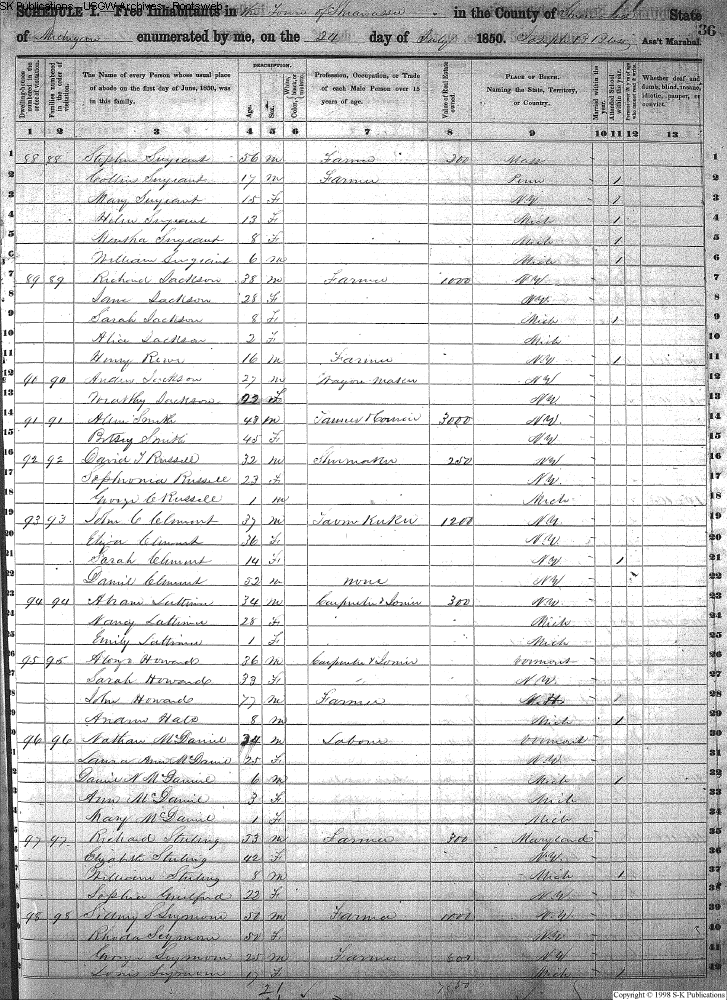 SK Publications - USGW Archives - Rootsweb
SCHEDULE I. Free Inhabitants in the Town of in the County of State
of Michigan enumerated by me, on the 24 day of July 1850. Ass't Marshal.
36
Dwelling-houses numbered in the order of visitation.
Families numbered in the order of visitation.
The Name of every Person whose usual place of abode on the first day of June, 1850, was in this family.
DESCRIPTION.
Age.
Sex.
Color, White, black, or mulatto.
Profession, Occupation, or Trade of each Male Person over 15 years of age.
Value of Real Estate owned.
PLACE OF BIRTH. Naming the State, Territory, or Country.
Married within the year.
Attended School within the year.
Persons over 20 y'rs of age who cannot read & write.
Whether deaf and dumb, blind, insane, idiotic, pauper, or convict.
1 2 3 4 5 6 7 8 9 10 11 12 13
1 88 88 Stephen Sergeant 56 m Farmer 200 Mass 1
2 Collins Sergeant 17 m Farmer Penn 1 2
3 Mary Sergeant 15 F N Y 1 3
4 Helen Sergeant 13 F Mich 1 4
5 Sergeant 8 F Mich 1 5
6 William Sergeant 6 m Mich 1 6
7 89 89 Richard Jackson 38 m Farmer 1000 N Y 7
8 Jane Jackson 28 F N Y 8
9 Sarah Jackson 8 F Mich 1 9
10 Alice Jackson 2 F Mich 10
11 Henry 16 m Farmer N Y 1 11
12 90 90 Andrew Jackson 27 m Wagon maker N Y 12
13 Jackson 22 F N Y 13
14 91 91 Smith 48 m Tanner & Currier 3000 N Y 14
15 Betsy Smith 45 F N Y 15
16 92 92 David T Russell 32 m Shumaker 250 N Y 16
17 Sophronia Russell 23 F N Y 17
18 George C Russell 1 m Mich 18
19 93 93 John C Clement 37 m Tavrn Keeker 1200 N Y 19
20 Eliza Clement 36 F N Y 20
21 Sarah Clement 14 F N Y 1 21
22 Daniel Clement 52 m none N Y 22
23 94 94 Abram Lattimer 34 m Carpenter & Joiner 300 N Y 23
24 Nancy Lattimer 28 F Mich 24
25 Emily Lattimer 1 F Mich 25
26 95 95 Alonzo Howard 36 m Carpenter & Joiner Vermont 26
27 Sarah Howard 33 F N Y 27
28 John Howard 77 m Farmer N. H. 28
29 Andrew Hale 8 m Mich 1 29
30 96 96 Nathan McDaniel 34 m Laborer Vermont 30
31 Laura Ann McDaniel 25 F N Y 31
32 Daniel N McDaniel 6 m Mich 1 32
33 Ann McDaniel 3 F Mich 33
34 Mary McDaniel 1 F Mich 34
35 97 97 Richard Sterling 53 m Farmer 300 Maryland 35
36 Elizabeth Sterling 42 F N Y 36
37 William Sterling 8 m Mich 1 37
38 Sophia Guilford 22 F N Y 38
39 98 98 Sidney S Seymour 50 m Farmer 1000 N Y 39
40 Rhoda Seymour 50 F N Y 40
41 George Seymour 25 m Farmer 600 N Y 41
42 Seymour 17 F Mich 1 42
21
Copyright © 1998 S-K Publications